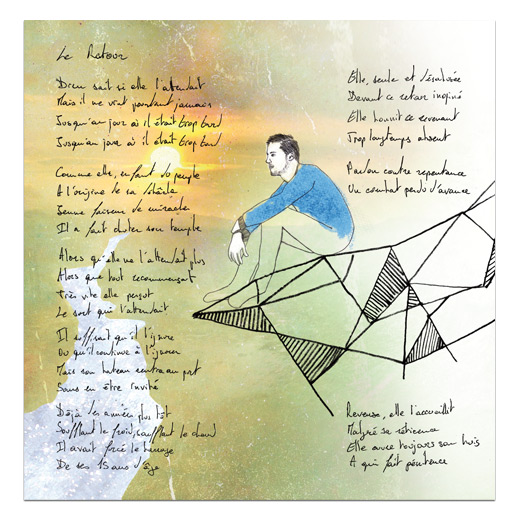 Le Retour
Dieu sait si elle l'attendait
Mais il ne vint pourtant jamais
Jusqu'au jour où il était trop tard
Jusqu'au jour où il était trop tard
Comme elle, enfant du peuple
A l'origine de sa
Jeune faiseur de miracle
Il a fait chuter son temple
Alors qu'elle ne l'attendait plus
Alors que tout recommençait
Très vite elle perçut
Le sort qui l'attendait
Il suffisait qu'il l'ignore
Ou qu'il continue à l'ignorer
Mais son bateau rentra au port
Sans en être invité
Déjà les années plus tôt
Soufflant le froid, soufflant le chaud
Il avait forcé le
De ses 15 ans d'âge
Elle, seule et désabusée
Devant ce retour inopiné
Elle honnit ce revenant
Trop longtemps absent
Pardon contre repentance
Un combat perdu d'avance
Revenue, elle l'accueillit
Malgré sa réticence
Elle ouvre toujours son huis
A qui fait pénitence